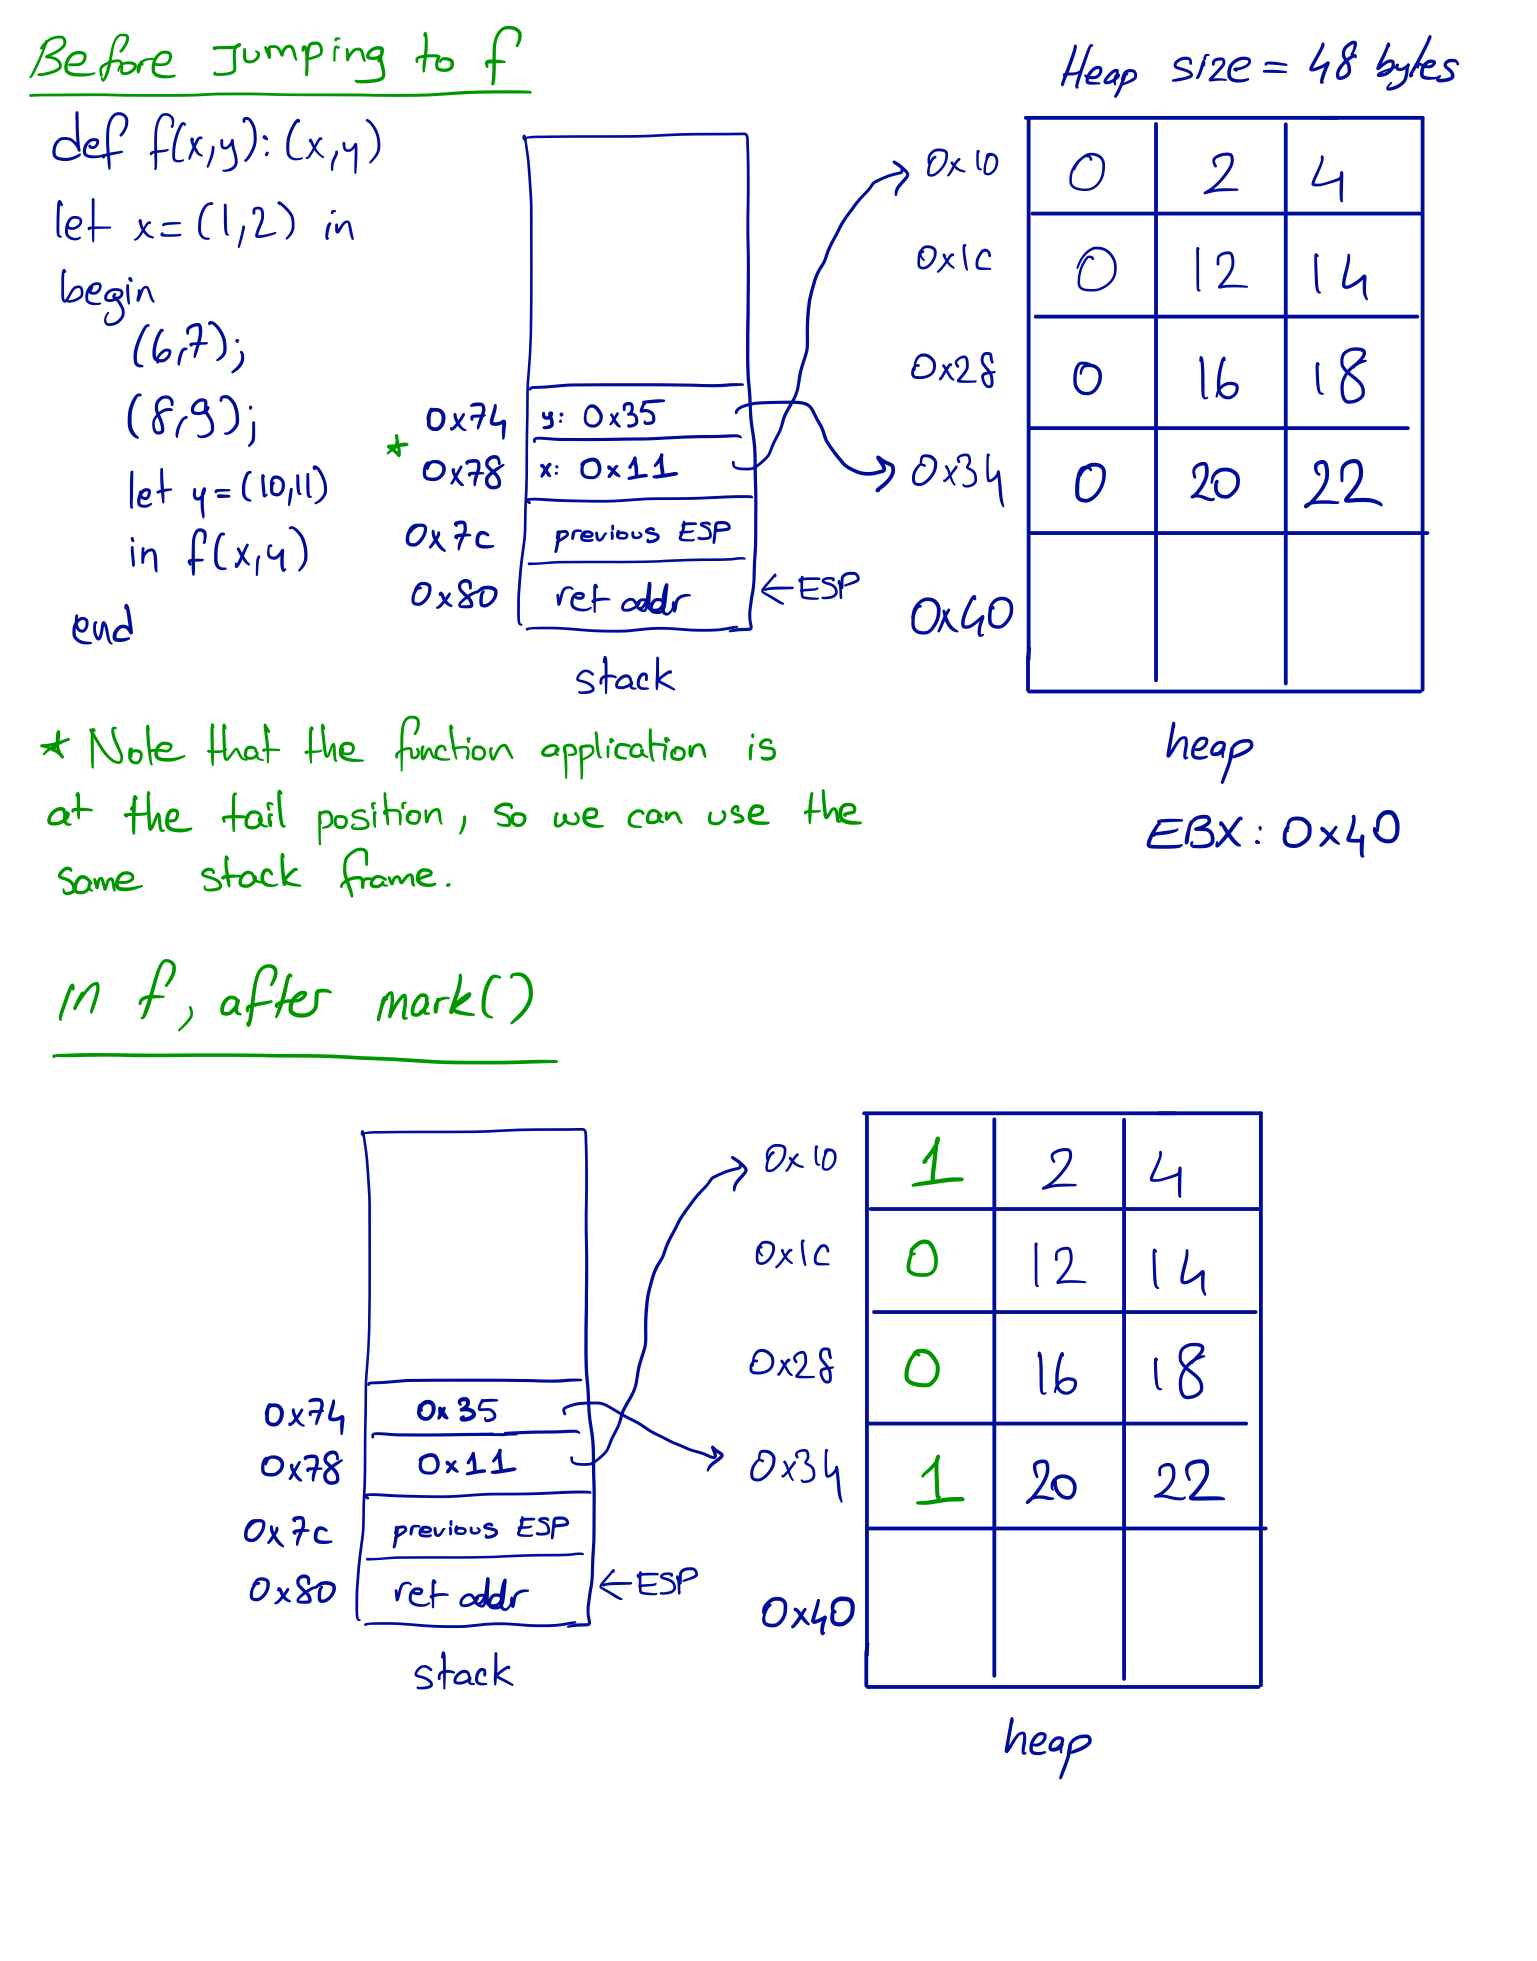 Before Jumping to f
Heap size = 48 bytes
def f(x,y): (x,y)
let x = (1,2) in
begin
(6,7);
(8,9);
let y = (10,11)
in f(x,y)
end
0x74 y: 0x35
* 0x78 x: 0x11
0x7c previous ESP
0x80 ret addr ← ESP
stack
0x10 0 2 4
0x1c 0 12 14
0x28 0 16 18
0x34 0 20 22
0x40
heap
EBX: 0x40
* Note that the function application is
at the tail position, so we can use the
same stack frame.
in f, after mark()
0x74 0x35
0x78 0x11
0x7c previous ESP
0x80 ret addr ← ESP
stack
0x10 1 2 4
0x1c 0 12 14
0x28 0 16 18
0x34 1 20 22
0x40
heap